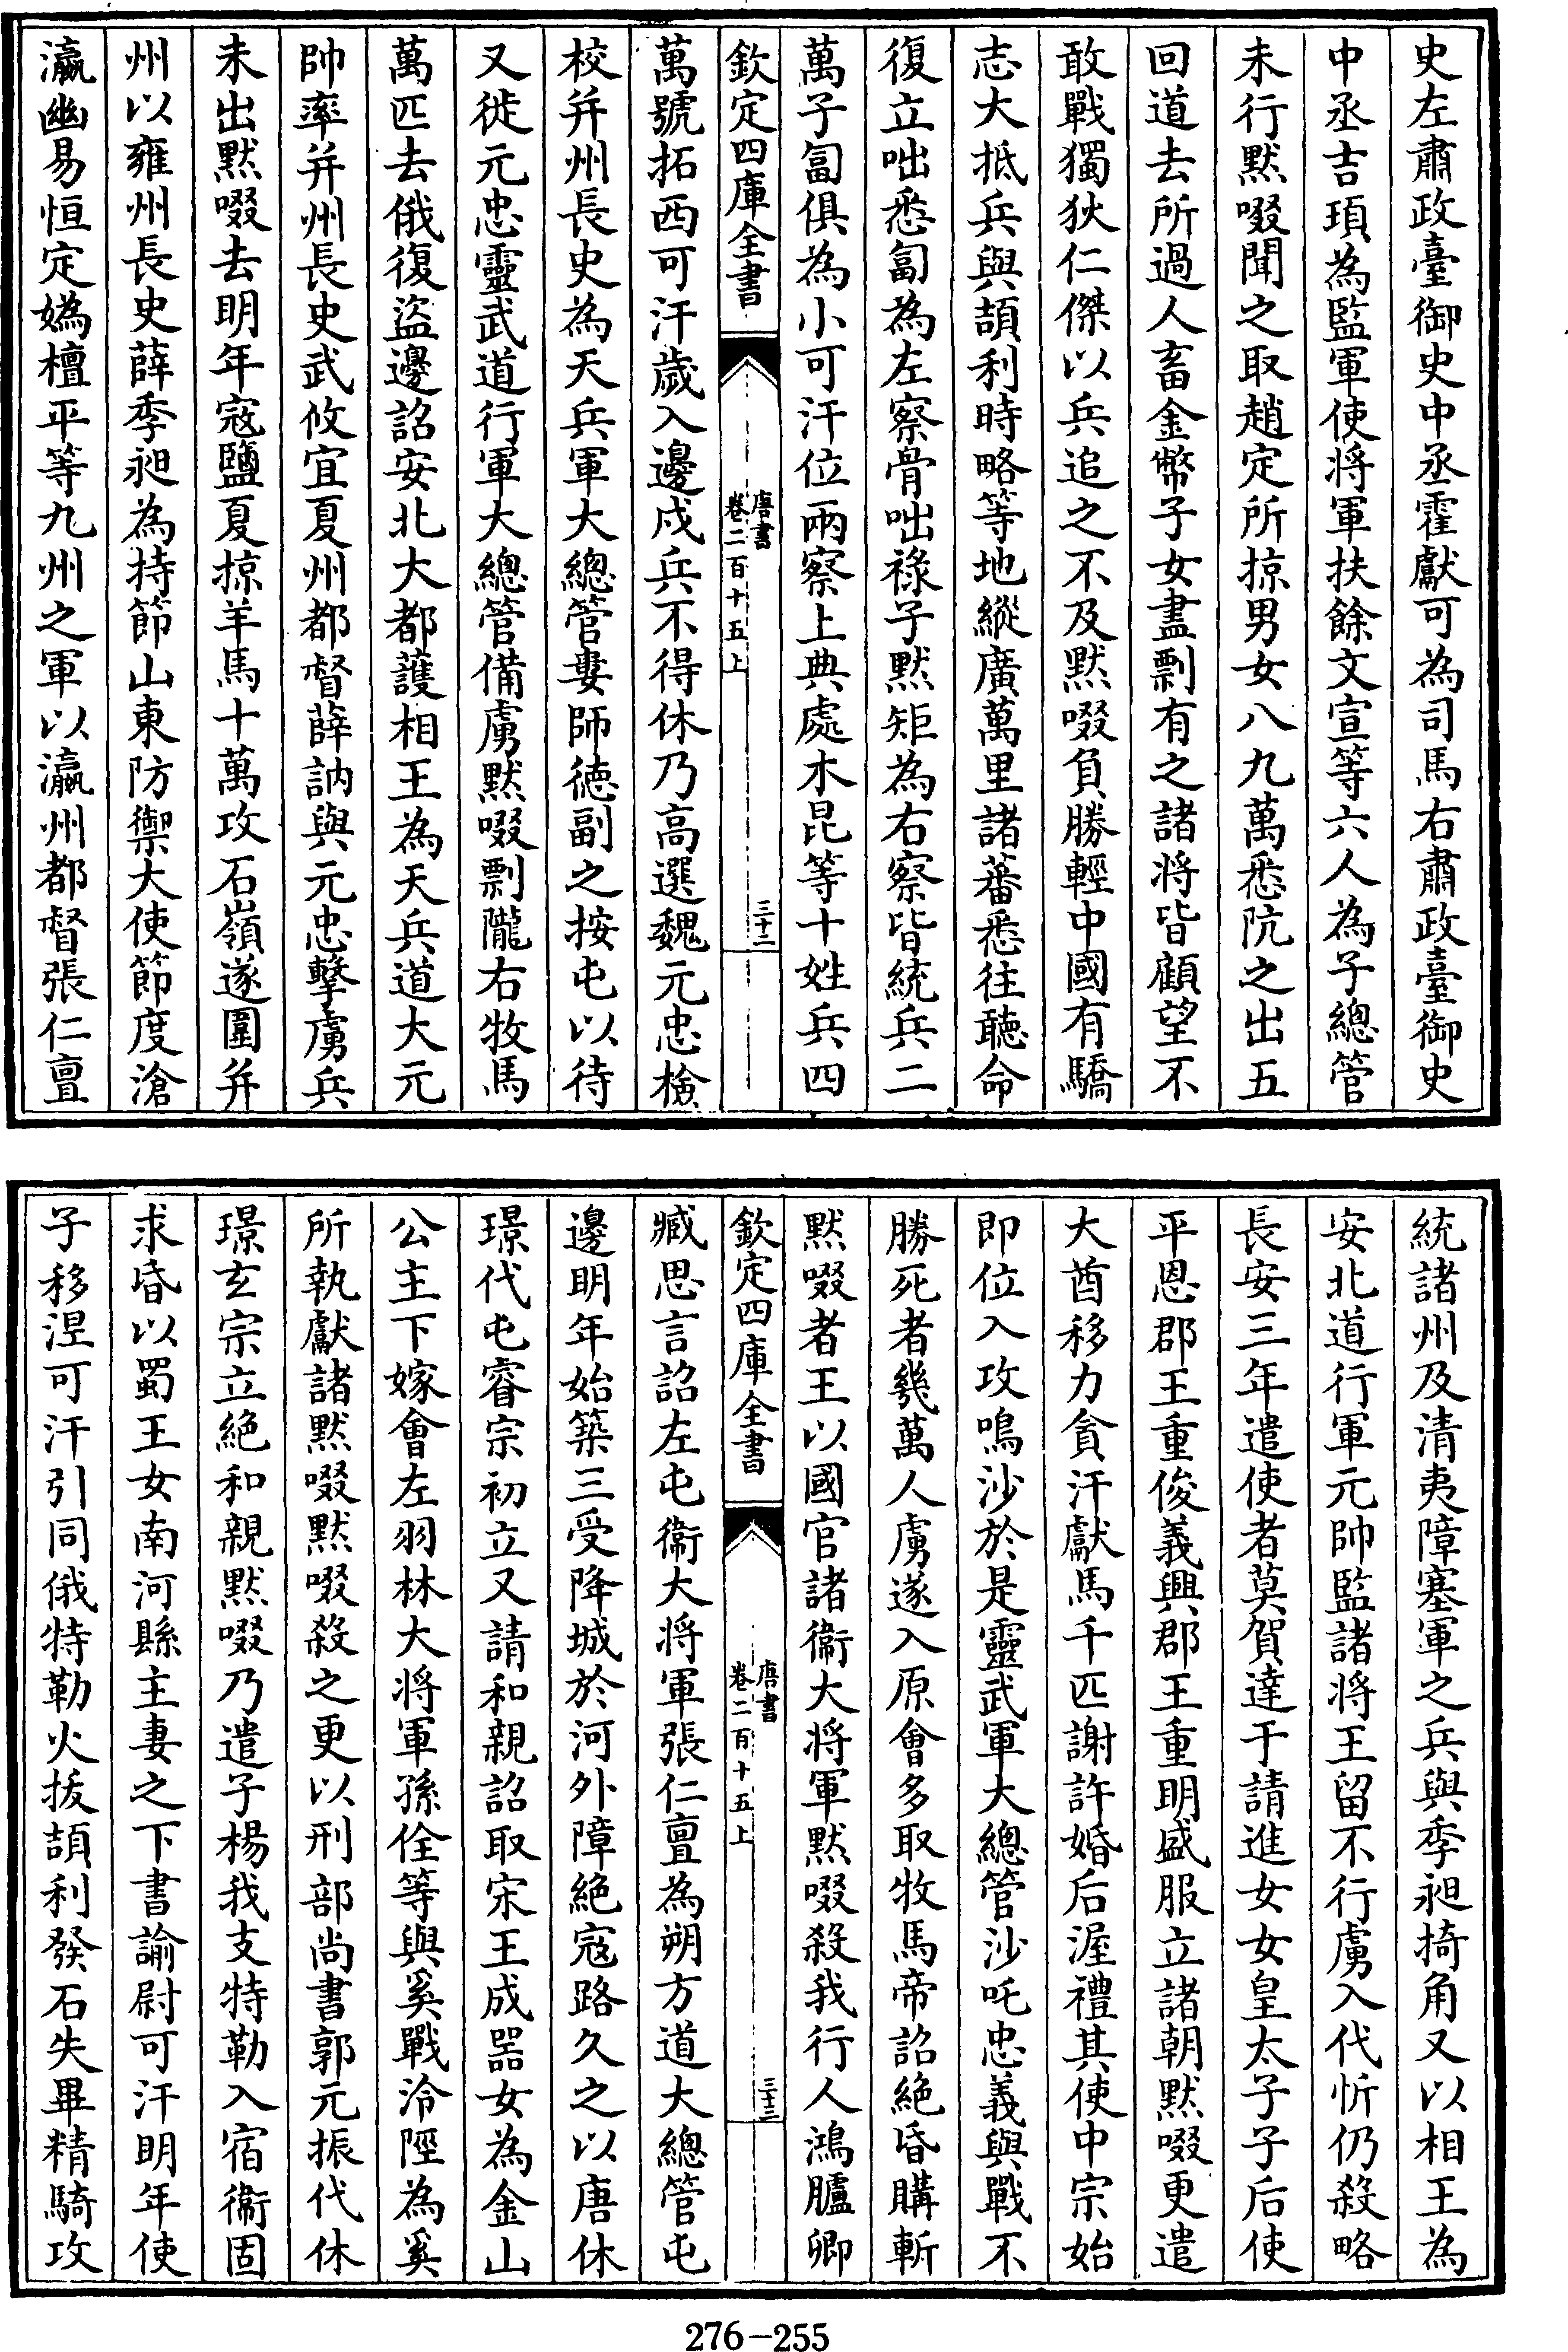 史左肅政臺御史中丞霍獻可為司馬右肅政臺御史
中丞吉頊為監軍使將軍扶餘文宣等六人為子總管
未行默啜聞之取趙定所掠男女八九萬悉阬之出五
回道去所過人畜金幣子女盡剽有之諸將皆顧望不
敢戰獨狄仁傑以兵追之不及默啜負勝輕中國有驕
志大抵兵與頡利時略等地縱廣萬里諸蕃悉往聽命
復立咄悉匐為左察骨咄祿子默矩為右察皆統兵二
萬子匐俱為小可汗位兩察上典處木昆等十姓兵四
欽定四庫全書
唐書
卷二百十五上
三十二
萬號拓西可汗歲入邊戍兵不得休乃高選魏元忠檢
校并州長史為天兵軍大總管婁師徳副之按屯以待
又徙元忠靈武道行軍大總管備虜默啜剽隴右牧馬
萬匹去俄復盜邊詔安北大都護相王為天兵道大元
帥率并州長史武攸宜夏州都督薛訥與元忠擊虜兵
未出默啜去明年寇鹽夏掠羊馬十萬攻石嶺遂圍并
州以雍州長史薛季昶為持節山東防禦大使節度滄
瀛幽易恒定媯檀平等九州之軍以瀛州都督張仁亶
統諸州及清夷障塞軍之兵與季昶掎角又以相王為
安北道行軍元帥監諸將王留不行虜入代忻仍殺略
長安三年遣使者莫賀達干請進女女皇太子子后使
平恩郡王重俊義興郡王重明盛服立諸朝默啜更遣
大酋移力貪汗獻馬千匹謝許婚后渥禮其使中宗始
即位入攻鳴沙於是靈武軍大總管沙吒忠義與戰不
勝死者幾萬人虜遂入原會多取牧馬帝詔絕昏購斬
默啜者王以國官諸衞大將軍默啜殺我行人鴻臚卿
欽定四庫全書
唐書
卷二百十五上
三十三
臧思言詔左屯衞大將軍張仁亶為朔方道大總管屯
邊明年始築三受降城於河外障絕寇路久之以唐休
璟代屯睿宗初立又請和親詔取宋王成器女為金山
公主下嫁會左羽林大將軍孫佺等與奚戰泠陘為奚
所執獻諸默啜默啜殺之更以刑部尚書郭元振代休
璟玄宗立絕和親默啜乃遣子楊我支特勒入宿衞固
求昏以蜀王女南河縣主妻之下書諭尉可汗明年使
子移涅可汗引同俄特勒火拔頡利發石失畢精騎攻
276-255